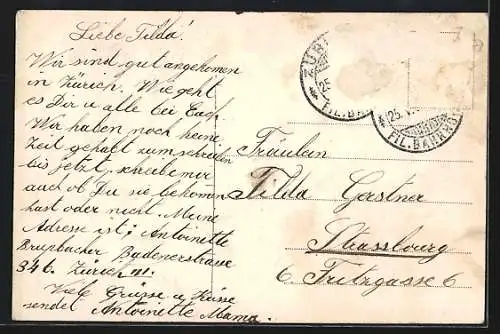 Liebe Tilda!
Wir sind gut angekommen
in Zürich. Wie geht
es Dir u alle bei Euch.
Wir haben noch keine
Zeit gehabt zum schreiben
bis jetzt, schreibe mir
auch ob Du sie bekommen
hast oder nicht. Meine
Adresse ist; Antoinette
Brupbacher Badenerstrasse
346. Zürich III.
Viele Grüsse u Küsse
sendet Antoinette Mama.
Fräulein
Tilda Gerstner
Strassbourg
6 Fritzgasse 6
ZÜR
25
FIL.BA
25. V
FIL.BAHNHO